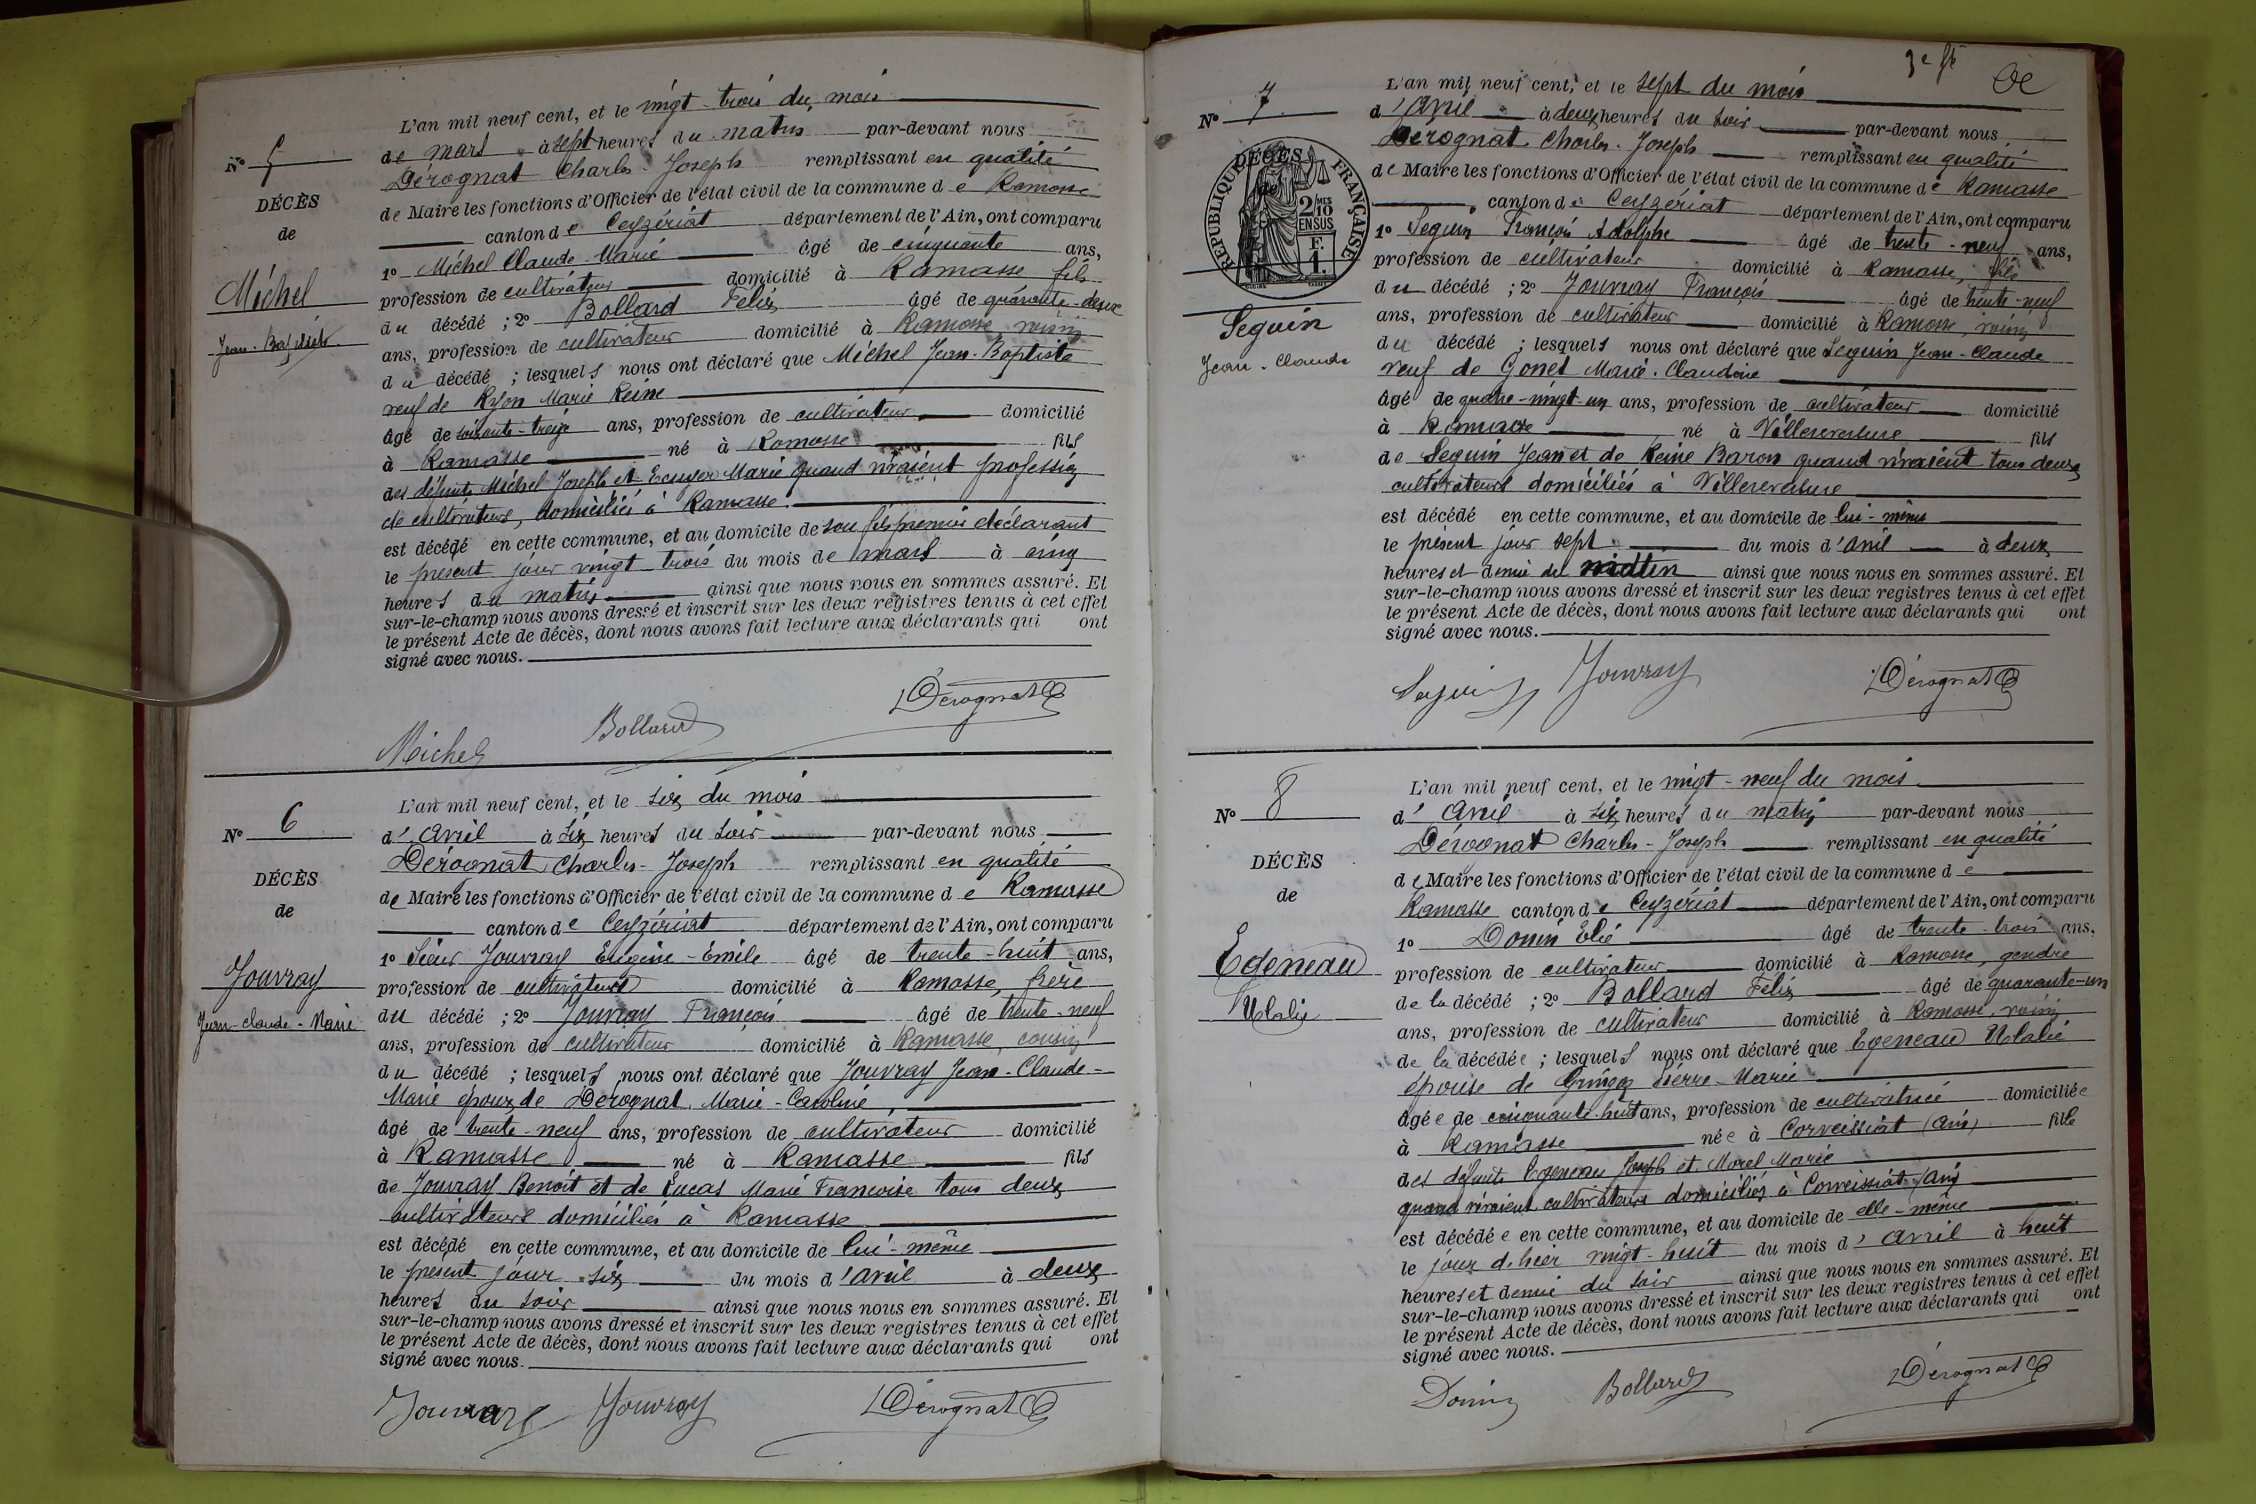 L'an mil neuf cent, et le vingt-trois du mois
N° 5
de mars à sept heures du matin par-devant nous
Dérognat Charles-Joseph remplissant en qualité
DÉCÈS
de Maire les fonctions d'Officier de l'état civil de la commune de Ramasse
de
canton de Ceyzériat département de l'Ain, ont comparu
1° Michel Claude-Marie âgé de cinquante ans,
Michel
profession de cultivateur domicilié à Ramasse fils
Jean-Baptiste
du décédé ; 2° Bollard Félix âgé de quarante-deux
ans, profession de cultivateur domicilié à Ramasse, voisin
du décédé ; lesquels nous ont déclaré que Michel Jean-Baptiste
veuf de Ryon Marie Reine
âgé de soixante-treize ans, profession de cultivateur domicilié
à Ramasse né à Ramasse fils
des défunts Michel Joseph et Ecuyer Marie quand vivaient profession
de cultivateurs, domiciliés à Ramasse.
est décédé en cette commune, et au domicile de son fils premier déclarant
le présent jour vingt trois du mois de mars à cinq
heures du matin ainsi que nous nous en sommes assuré. Et
sur-le-champ nous avons dressé et inscrit sur les deux registres tenus à cet effet
le présent Acte de décès, dont nous avons fait lecture aux déclarants qui ont
signé avec nous.
Michel Bollard Dérognat
L'an mil neuf cent, et le six du mois
N° 6
d'avril à six heures du soir par-devant nous
Dérognat Charles-Joseph remplissant en qualité
DÉCÈS
de Maire les fonctions d'Officier de l'état civil de la commune de Ramasse
de
canton de Ceyzériat département de l'Ain, ont comparu
1° Sieur Jouvray Eugène-Emile âgé de trente-huit ans,
Jouvray
profession de cultivateur domicilié à Ramasse, frère
Jean-Claude-Marie
du décédé ; 2° Jouvray François âgé de trente-neuf
ans, profession de cultivateur domicilié à Ramasse, cousin
du décédé ; lesquels nous ont déclaré que Jouvray Jean-Claude-
Marie époux de Dérognat Marie-Caroline
âgé de trente-neuf ans, profession de cultivateur domicilié
à Ramasse né à Ramasse fils
de Jouvray Benoit et de Lucas Marie Françoise tous deux
cultivateurs domiciliés à Ramasse
est décédé en cette commune, et au domicile de lui-même
le présent jour six du mois d'avril à deux
heures du soir ainsi que nous nous en sommes assuré. Et
sur-le-champ nous avons dressé et inscrit sur les deux registres tenus à cet effet
le présent Acte de décès, dont nous avons fait lecture aux déclarants qui ont
signé avec nous.
Jouvray Jouvray Dérognat
3e
L'an mil neuf cent, et le sept du mois
N° 7
d'avril à deux heures du soir par-devant nous
Dérognat Charles-Joseph remplissant en qualité
DÉCÈS
de
RÉPUBLIQUE FRANÇAISE
2/10 MES
EN SUS
F.
1.
de Maire les fonctions d'Officier de l'état civil de la commune de Ramasse
canton de Ceyzériat département de l'Ain, ont comparu
1° Seguin François Adolphe âgé de trente-neuf ans,
profession de cultivateur domicilié à Ramasse, fils
du décédé ; 2° Jouvray François âgé de trente-neuf
Seguin
ans, profession de cultivateur domicilié à Ramasse, voisin
Jean-Claude
du décédé ; lesquels nous ont déclaré que Seguin Jean-Claude
veuf de Gonet Marie-Claudine
âgé de quatre-vingt-un ans, profession de cultivateur domicilié
à Ramasse né à Villereversure fils
de Seguin Jean et de Reine Baron quand vivaient tous deux
cultivateurs domiciliés à Villereversure
est décédé en cette commune, et au domicile de lui-même
le présent jour sept du mois d'avril à deux
heures et demie du matin ainsi que nous nous en sommes assuré. Et
sur-le-champ nous avons dressé et inscrit sur les deux registres tenus à cet effet
le présent Acte de décès, dont nous avons fait lecture aux déclarants qui ont
signé avec nous.
Seguin Jouvray Dérognat
L'an mil neuf cent, et le vingt-neuf du mois
N° 8
d'avril à six heures du matin par-devant nous
Dérognat Charles-Joseph remplissant en qualité
DÉCÈS
de Maire les fonctions d'Officier de l'état civil de la commune de
de
Ramasse canton de Ceyzériat département de l'Ain, ont comparu
1° Donin Elie âgé de trente-trois ans,
Egeneau
profession de cultivateur domicilié à Ramasse, gendre
Ulalie
de la décédé ; 2° Bollard Félix âgé de quarante-un
ans, profession de cultivateur domicilié à Ramasse, voisin
de la décédée ; lesquels nous ont déclaré que Egeneau Ulalie
épouse de Pierre-Marie
âgée de cinquante-huit ans, profession de cultivatrice domiciliée
à Ramasse née à Corveissiat (Ain) fille
des défunts Egeneau Joseph et Morel Marie
quand vivaient cultivateurs domiciliés à Corveissiat (Ain)
est décédée en cette commune, et au domicile de elle-même
le jour d'hier vingt-huit du mois d'avril à huit
heures et demie du soir ainsi que nous nous en sommes assuré. Et
sur-le-champ nous avons dressé et inscrit sur les deux registres tenus à cet effet
le présent Acte de décès, dont nous avons fait lecture aux déclarants qui ont
signé avec nous.
Donin Bollard Dérognat